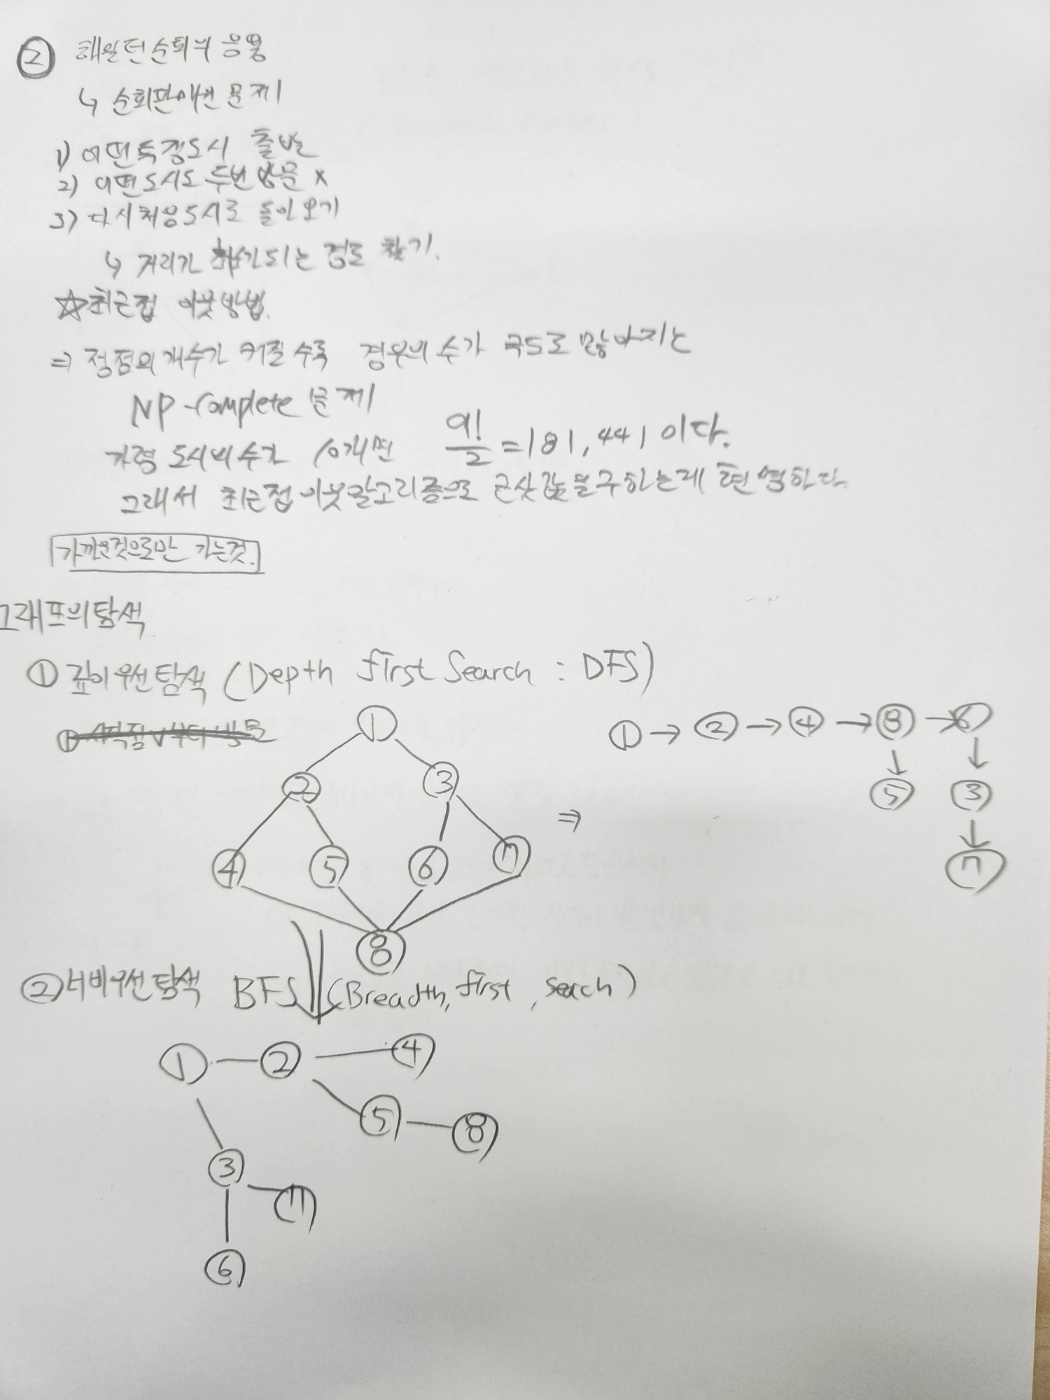 ② 해밀턴순회의 응용
↳ 순회판매원 문제
1) 어떤특정도시 출발
2) 어떤도시도 두번 방문 x
3) 다시처음도시로 돌아오기
↳ 거리가 최소가되는 경로 찾기.
☆최근접 이웃방법.
⇒ 정점의 개수가 커질수록 경우의 수가 극도로 많아지는
NP-complete 문제
가령 도시의 수가 10개면 9!/2 = 181,441 이다.
그래서 최근접이웃알고리즘으로 근삿값을구하는게 현명하다.
가까운것으로만 가는것.
그래프의탐색
① 깊이우선탐색 (Depth first Search : DFS)
①
② ③
④ ⑤ ⑥ ⑦
⑧
⇒
① → ② → ④ → ⑧ → ⑥
↓ ↓
⑤ ③
↓
⑦
② 너비우선탐색 BFS (Breadth, first, serch)
① ② ④
⑤ ⑧
③ ⑦
⑥